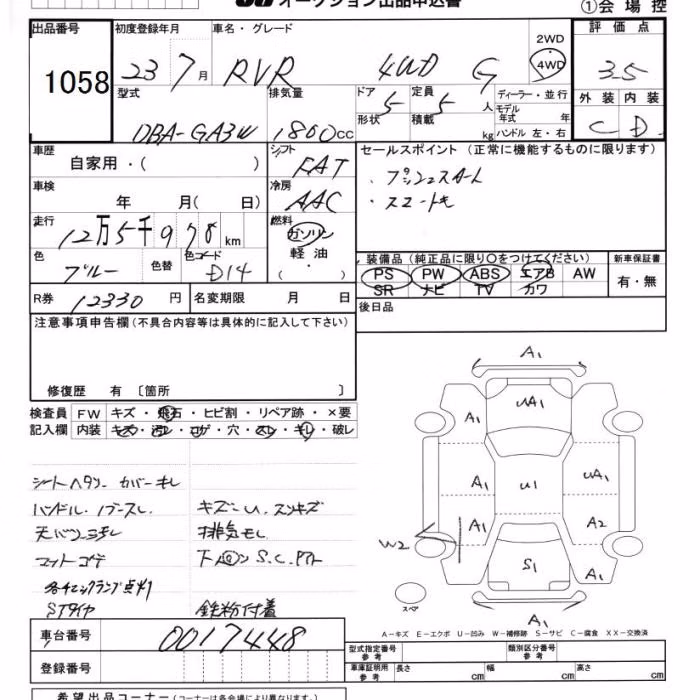 オークション出品申込書
①会場控
出品番号 初度登録年月 車名・グレード 評価点
1058 23 7月 RVR 4WD G 2WD 4WD 3.5
型式 排気量 ドア 定員 ディーラー・並行 外装 内装
DBA-GA3W 1800cc 5 5人 モデル年式 年 C D
形状 積載 kg ハンドル 左・右
車歴 シフト セールスポイント(正常に機能するものに限ります)
自家用・( ) FAT
・プッシュスタート
車検 冷房
年 月( 日) AAC
・スマートキー
走行 燃料
12万5千978km ガソリン
軽油
・
( )
装備品(純正品に限り○をつけてください) 新車保証書
色 色替 色コード
ブルー D14
PS PW ABS エアB AW 有・無
SR ナビ TV カワ
R券 12330円 名変期限 月 日 後日品
注意事項申告欄(不具合内容等は具体的に記入して下さい)
修復歴 有 〔箇所 〕
検査員 FW キズ・飛石・ヒビ割・リペア跡・×要
記入欄 内装 キズ・汚レ・コゲ・穴・スレ・キレ・破レ
シートヘタリ カバーキレ
ハンドル・ノブスレ キズ・U. スリキズ
天バリ汚レ 排気モレ
マットコゲ 下廻り S.C.
各チェックランプ点灯
STタイヤ 鉄粉付着
A1
A1 UA1
A1 U1 UA1
A1 A2
W2
S1 A1
スペア
A1
A-キズ E-エクボ U-凹み W-補修跡 S-サビ C-腐食 XX-交換済
車台番号 0017448
登録番号
型式指定番号 参考 類別区分番号 参考
車庫証明用 参考 長さ cm 幅 cm 高さ cm
希望出品コーナー(コーナーは各会場により異なります)